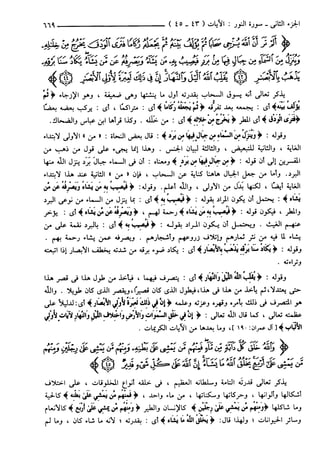 الجزء الثاني - سورة النور : الآيات (٤٣ - ٤٥) ٦٦٩
﴿ أَلَمْ تَرَ أَنَّ اللَّهَ يُزْجِي سَحَابًا ثُمَّ يُؤَلِّفُ بَيْنَهُ ثُمَّ يَجْعَلُهُ رُكَامًا فَتَرَى الْوَدْقَ يَخْرُجُ مِنْ خِلَالِهِ
وَيُنَزِّلُ مِنَ السَّمَاءِ مِن جِبَالٍ فِيهَا مِن بَرَدٍ فَيُصِيبُ بِهِ مَن يَشَاءُ وَيَصْرِفُهُ عَن مَّن يَشَاءُ يَكَادُ سَنَا بَرْقِهِ
يَذْهَبُ بِالْأَبْصَارِ ﴿٤٣﴾ يُقَلِّبُ اللَّهُ اللَّيْلَ وَالنَّهَارَ إِنَّ فِي ذَلِكَ لَعِبْرَةً لِّأُولِي الْأَبْصَارِ ﴿٤٤﴾
يذكر تعالى أنه يسوق السحاب بقدرته أول ما ينشئها وهي ضعيفة ، وهو الإزجاء ﴿ ثُمَّ
يُؤَلِّفُ بَيْنَهُ ﴾ أي : يجمعه بعد تفرقه ﴿ ثُمَّ يَجْعَلُهُ رُكَامًا ﴾ أي : متراكمًا ، أي : يركب بعضه بعضًا
﴿ فَتَرَى الْوَدْقَ ﴾ أي المطر ﴿ يَخْرُجُ مِنْ خِلَالِهِ ﴾ أي : من خلله . وكذا قرأها ابن عباس والضحاك.
وقوله : ﴿ وَيُنَزِّلُ مِنَ السَّمَاءِ مِن جِبَالٍ فِيهَا مِن بَرَدٍ ﴾ : قال بعض النحاة : « من » الأولى لابتداء
الغاية ، والثانية للتبعيض ، والثالثة لبيان الجنس . وهذا إنما يجيء على قول من ذهب من
المفسرين إلى أن قوله : ﴿ مِن جِبَالٍ فِيهَا مِن بَرَدٍ ﴾ ومعناه : أن في السماء جبال بَرَد ينزل الله منها
البرد. وأما من جعل الجبال هاهنا كناية عن السحاب ، فإن « من » الثانية عند هذا لابتداء
الغاية أيضًا ، لكنها بدل من الأولى ، والله أعلم. وقوله : ﴿ فَيُصِيبُ بِهِ مَن يَشَاءُ وَيَصْرِفُهُ عَن مَّن
يَشَاءُ ﴾ : يحتمل أن يكون المراد بقوله : ﴿ فَيُصِيبُ بِهِ ﴾ أي : بما ينزل من السماء من نوعي البرد
والمطر ، فيكون قوله : ﴿ فَيُصِيبُ بِهِ مَن يَشَاءُ ﴾ رحمة لهم ، ﴿ وَيَصْرِفُهُ عَن مَّن يَشَاءُ ﴾ أي : يؤخر
عنهم الغيث . ويحتمل أن يكون المراد بقوله : ﴿ فَيُصِيبُ بِهِ ﴾ أي : بالبرد نقمة على من
يشاء لما فيه من نثر ثمارهم وإتلاف زروعهم وأشجارهم . ويصرفه عمن يشاء رحمة بهم .
وقوله : ﴿ يَكَادُ سَنَا بَرْقِهِ يَذْهَبُ بِالْأَبْصَارِ ﴾ أي : يكاد ضوء برقه من شدته يخطف الأبصار إذا اتبعته
وتراءته .
وقوله : ﴿ يُقَلِّبُ اللَّهُ اللَّيْلَ وَالنَّهَارَ ﴾ أي : يتصرف فيهما ، فيأخذ من طول هذا في قصر هذا
حتى يعتدلا، ثم يأخذ من هذا في هذا، فيطول الذي كان قصيرًا، ويقصر الذي كان طويلا . والله
هو المتصرف في ذلك بأمره وقهره وعزته وعلمه ﴿ إِنَّ فِي ذَلِكَ لَعِبْرَةً لِّأُولِي الْأَبْصَارِ ﴾ أي : لدليلاً على
عظمته تعالى ، كما قال الله تعالى : ﴿ إِنَّ فِي خَلْقِ السَّمَاوَاتِ وَالْأَرْضِ وَاخْتِلَافِ اللَّيْلِ وَالنَّهَارِ لَآيَاتٍ لِّأُولِي
الْأَلْبَابِ ﴾ [ آل عمران: ١٩٠ ] ، وما بعدها من الآيات الكريمات .
﴿ وَاللَّهُ خَلَقَ كُلَّ دَابَّةٍ مِّن مَّاءٍ فَمِنْهُم مَّن يَمْشِي عَلَى بَطْنِهِ وَمِنْهُم مَّن يَمْشِي عَلَى رِجْلَيْنِ وَمِنْهُم
مَّن يَمْشِي عَلَى أَرْبَعٍ يَخْلُقُ اللَّهُ مَا يَشَاءُ إِنَّ اللَّهَ عَلَى كُلِّ شَيْءٍ قَدِيرٌ ﴿٤٥﴾
يذكر تعالى قدرته التامة وسلطانه العظيم ، في خلقه أنواع المخلوقات ، على اختلاف
أشكالها وألوانها ، وحركاتها وسكناتها ، من ماء واحد ، ﴿ فَمِنْهُم مَّن يَمْشِي عَلَى بَطْنِهِ ﴾ كالحية
وما شاكلها ﴿ وَمِنْهُم مَّن يَمْشِي عَلَى رِجْلَيْنِ ﴾ كالإنسان والطير ﴿ وَمِنْهُم مَّن يَمْشِي عَلَى أَرْبَعٍ ﴾ كالأنعام
وسائر الحيوانات ؛ ولهذا قال: ﴿ يَخْلُقُ اللَّهُ مَا يَشَاءُ ﴾ أي : بقدرته ؛ لأنه ما شاء كان ، وما لم